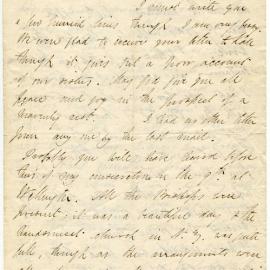 I must write you
a few hurried lines though I am very busy.
We were glad to receive your letter
though it gives but a poor account
of our sister. May God give you all
peace and joy in the prospect of a
heavenly rest. I had no other letter
from any one by the last mail.
Probably you will have heard before
this of my consecration on the 9th. at
Wellington. All the Bishops were
present. it was a beautiful day & the
handsomest church in N. Z. was quite
full, though as the arrangements were